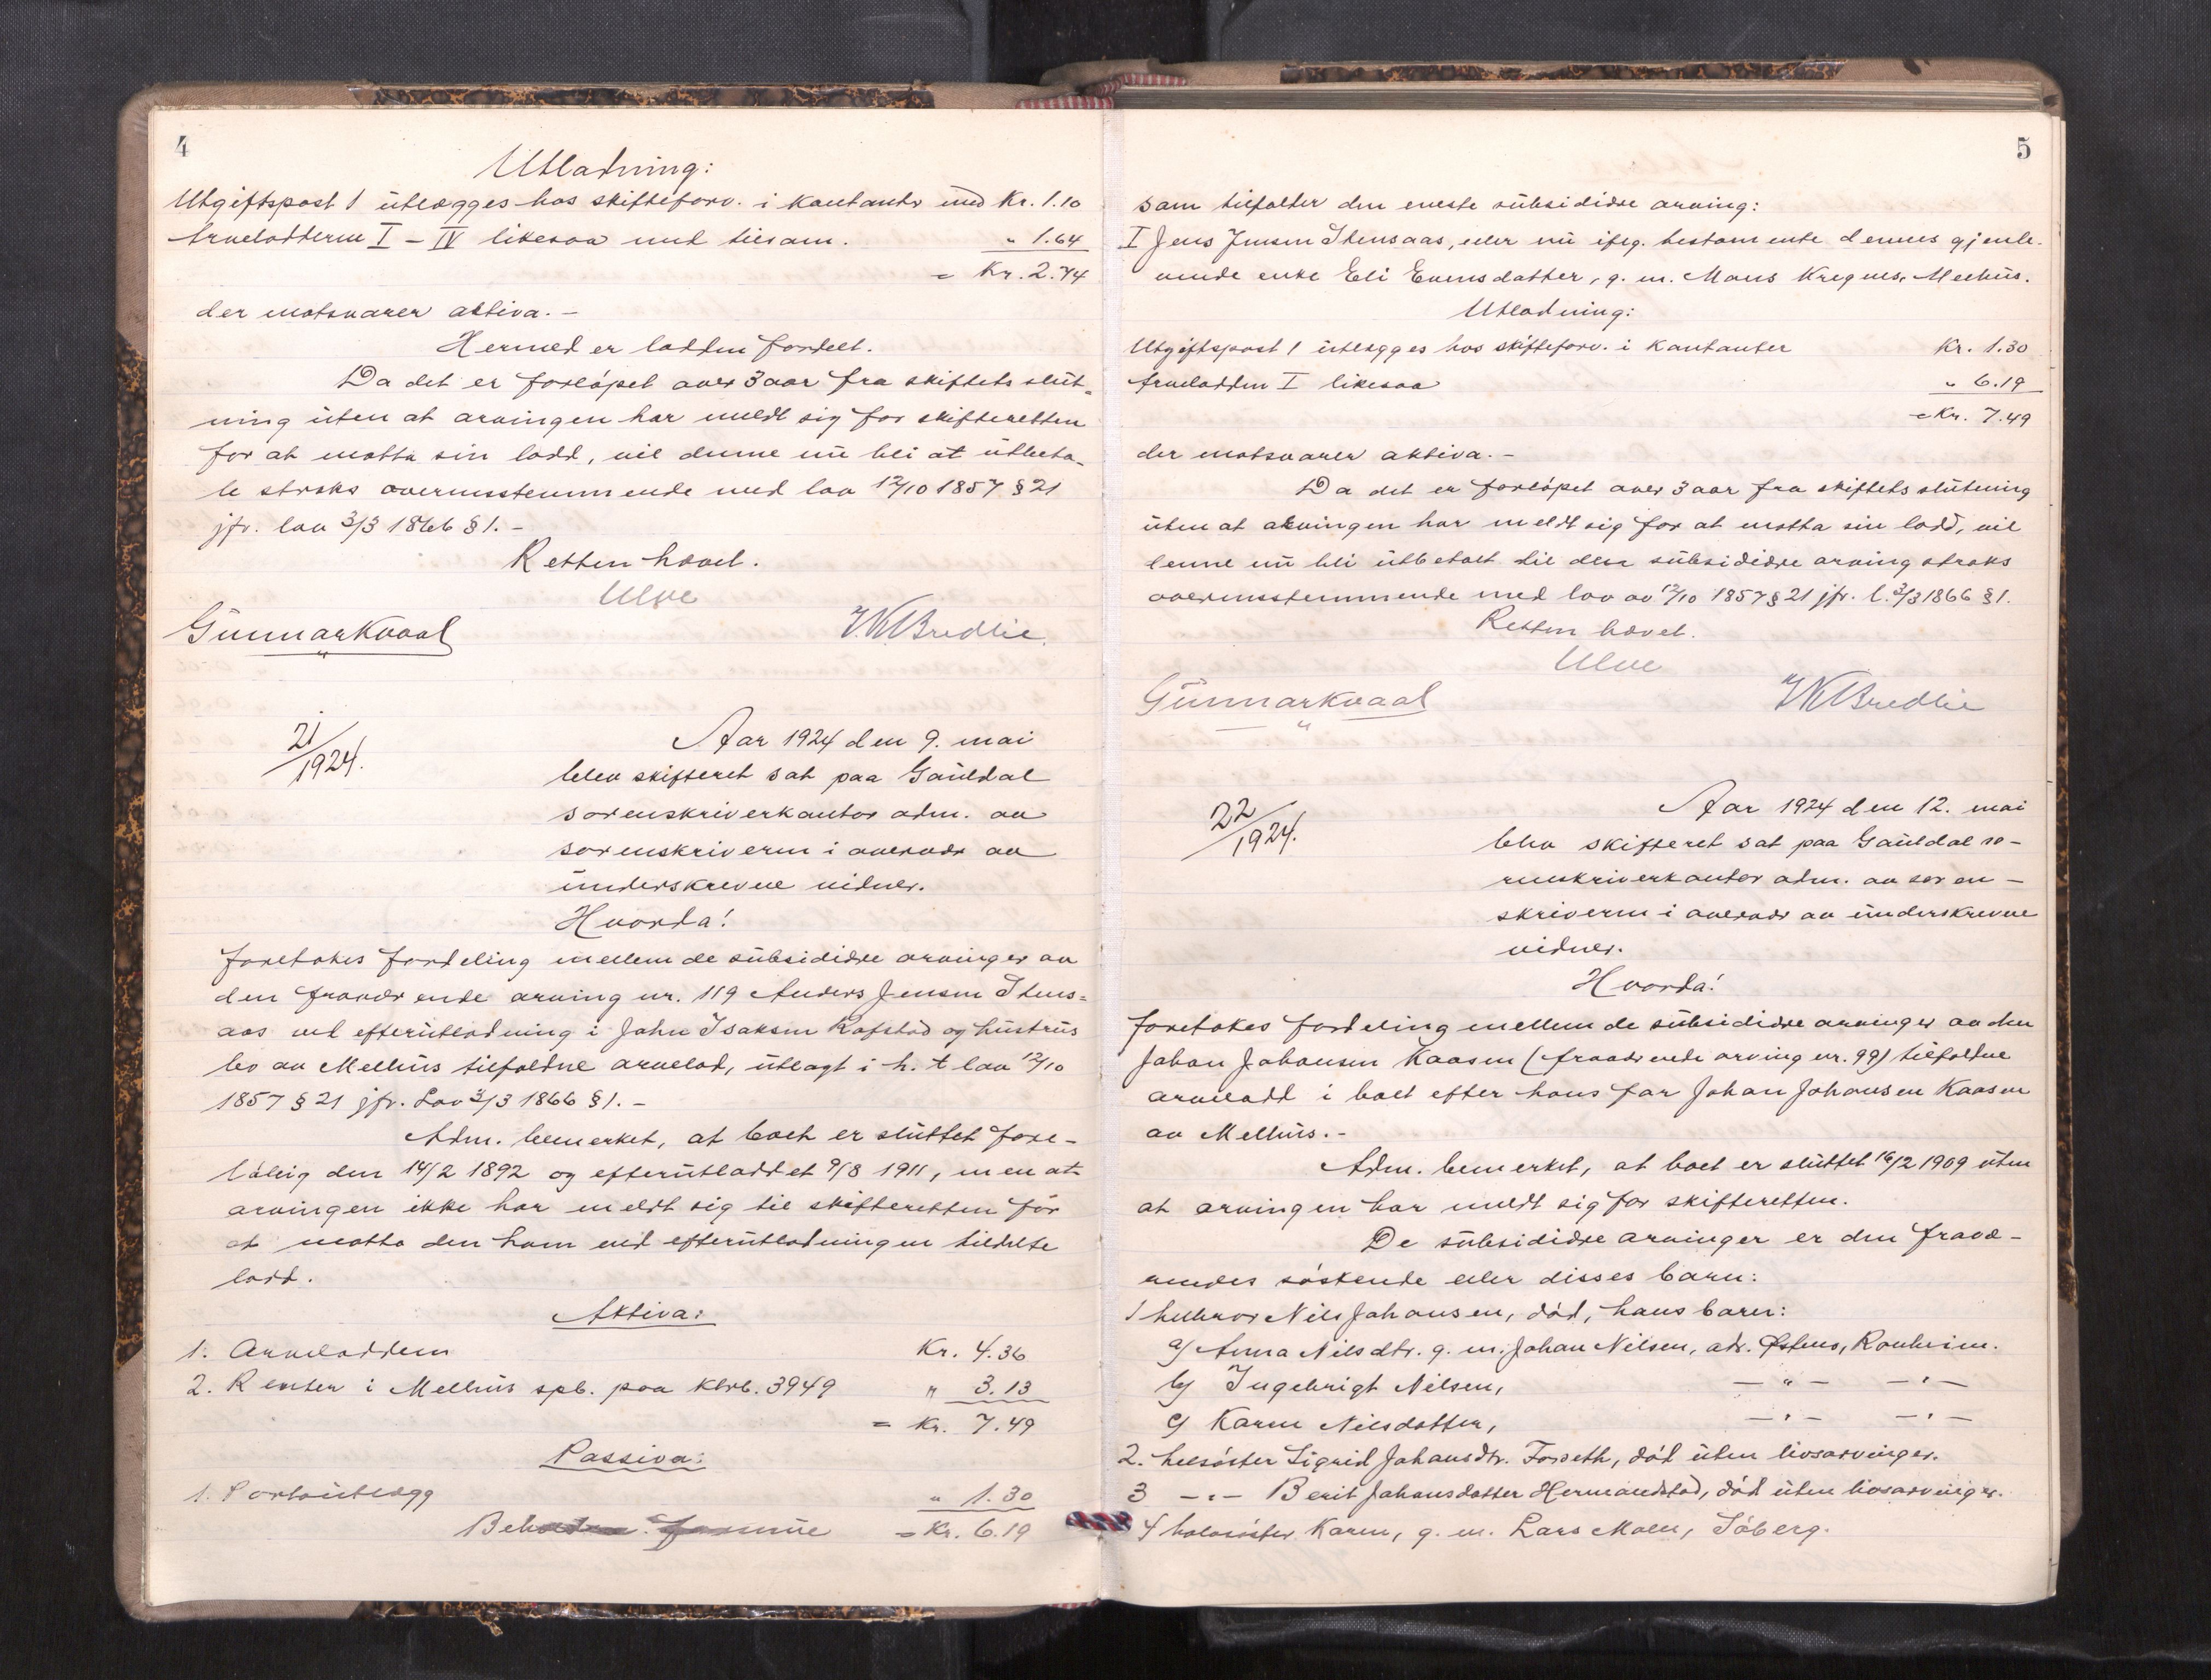 4
Utlodning:
Utgiftspost 1 utlægges hos skifteforv. i kontanter med Kr. 1.10
Arveloddene I – IV likesaa med tilsam. " 1.64
= Kr. 2.74
der motsvarer aktiva. –
Hermed er lodden fordelt.
Da det er forløpet over 3 aar fra skiftets slut-
ning uten at arvingen har meldt sig for skifteretten
for at motta sin lodd, vil denne nu bli at utbeta-
le straks overensstemmende med lov 12/10 1857 § 21
jfr. lov 3/3 1866 § 1. –
Retten hævet.
Ulve
Gunnar Kvaal
Bredlie
21/1924.
Aar 1924 den 9. mai
blev skifteret sat paa Gauldal
sorenskriverkontor adm. av
sorenskriveren i overvær av
underskrevne vidner.
Hvorda!
foretokes fordeling mellem de subsidiære arvinger av
den fraværende arving nr. 119 Anders Jensen Stens-
aas ved efterutlodning i John Isaksen Rofstad og hustrus
bo av Melhus tilfaldne arvelod, utlagt i h. t lov 12/10
1857 § 21 jfr. Lov 3/3 1866 § 1. –
Adm. bemerket, at boet er sluttet fore-
løbig den 14/2 1892 og efterutloddet 9/8 1911, men at
arvingen ikke har meldt sig til skifteretten for
at motta den ham ved efterutlodningen tildelte
lodd.
Aktiva:
1. Arvelodden Kr. 4.36
2. Renter i Melhus spb. paa ktrb. 3949 " 3.13
= Kr. 7.49
Passiva:
1. Portoutlegg " 1.30
= Kr. 6.19
5
som tilfalder den eneste subsidiære arving:
I Jens Jensen Stensaas, eller nu iflg. testamente dennes gjenle-
vende enke Eli Evensdatter, g. m. Mons Melhus.
Utlodning:
Utgiftspost 1 utlægges hos skifteforv. i kontanter Kr. 1.30
Arvelodden I likesaa " 6.19
= Kr. 7.49
der motsvarer aktiva. –
Da det er forløpet over 3 aar fra skiftets slutning
uten at arvingen har meldt sig for at motta sin lodd, vil
denne nu bli utbetalt til den subsidiære arving straks
overensstemmende med lov av 12/10 1857 § 21 jfr. l. 3/3 1866 § 1.
Retten hævet.
Ulve
Gunnar Kvaal
Bredlie
22/1924.
Aar 1924 den 12. mai
blev skifteret sat paa Gauldal so-
renskriverkontor adm. av soren-
skriveren i overvær av underskrevne
vidner.
Hvorda!
foretokes fordeling mellem de subsidiære arvinger av den
Johan Johansen Kaasen (fraværende arving nr. 99) tilfaldne
arvelodd i boet efter hans far Johan Johansen Kaasen
av Melhus. –
Adm. bemerket, at boet er sluttet 16/2 1909 uten
at arvingen har meldt sig for skifteretten.
De subsidiære arvinger er den fravæ-
rendes søskende eller disses barn:
1 helbror Nils Johansen, død, hans barn:
a) Anna Nilsdtr. g. m. Johan Nilsen, adr. Østens, Ranheim.
b) Ingebrigt Nilsen, – " – – " –
c) Karen Nilsdatter, – " – – " –
2. helsøster Sigrid Johansdtr. Forseth, død uten livsarvinger.
3 – " – Berit Johansdatter Hermanstad, død uten livsarvinger.
4 halvsøster Karen, g. m. Lars Moen, Søberg.